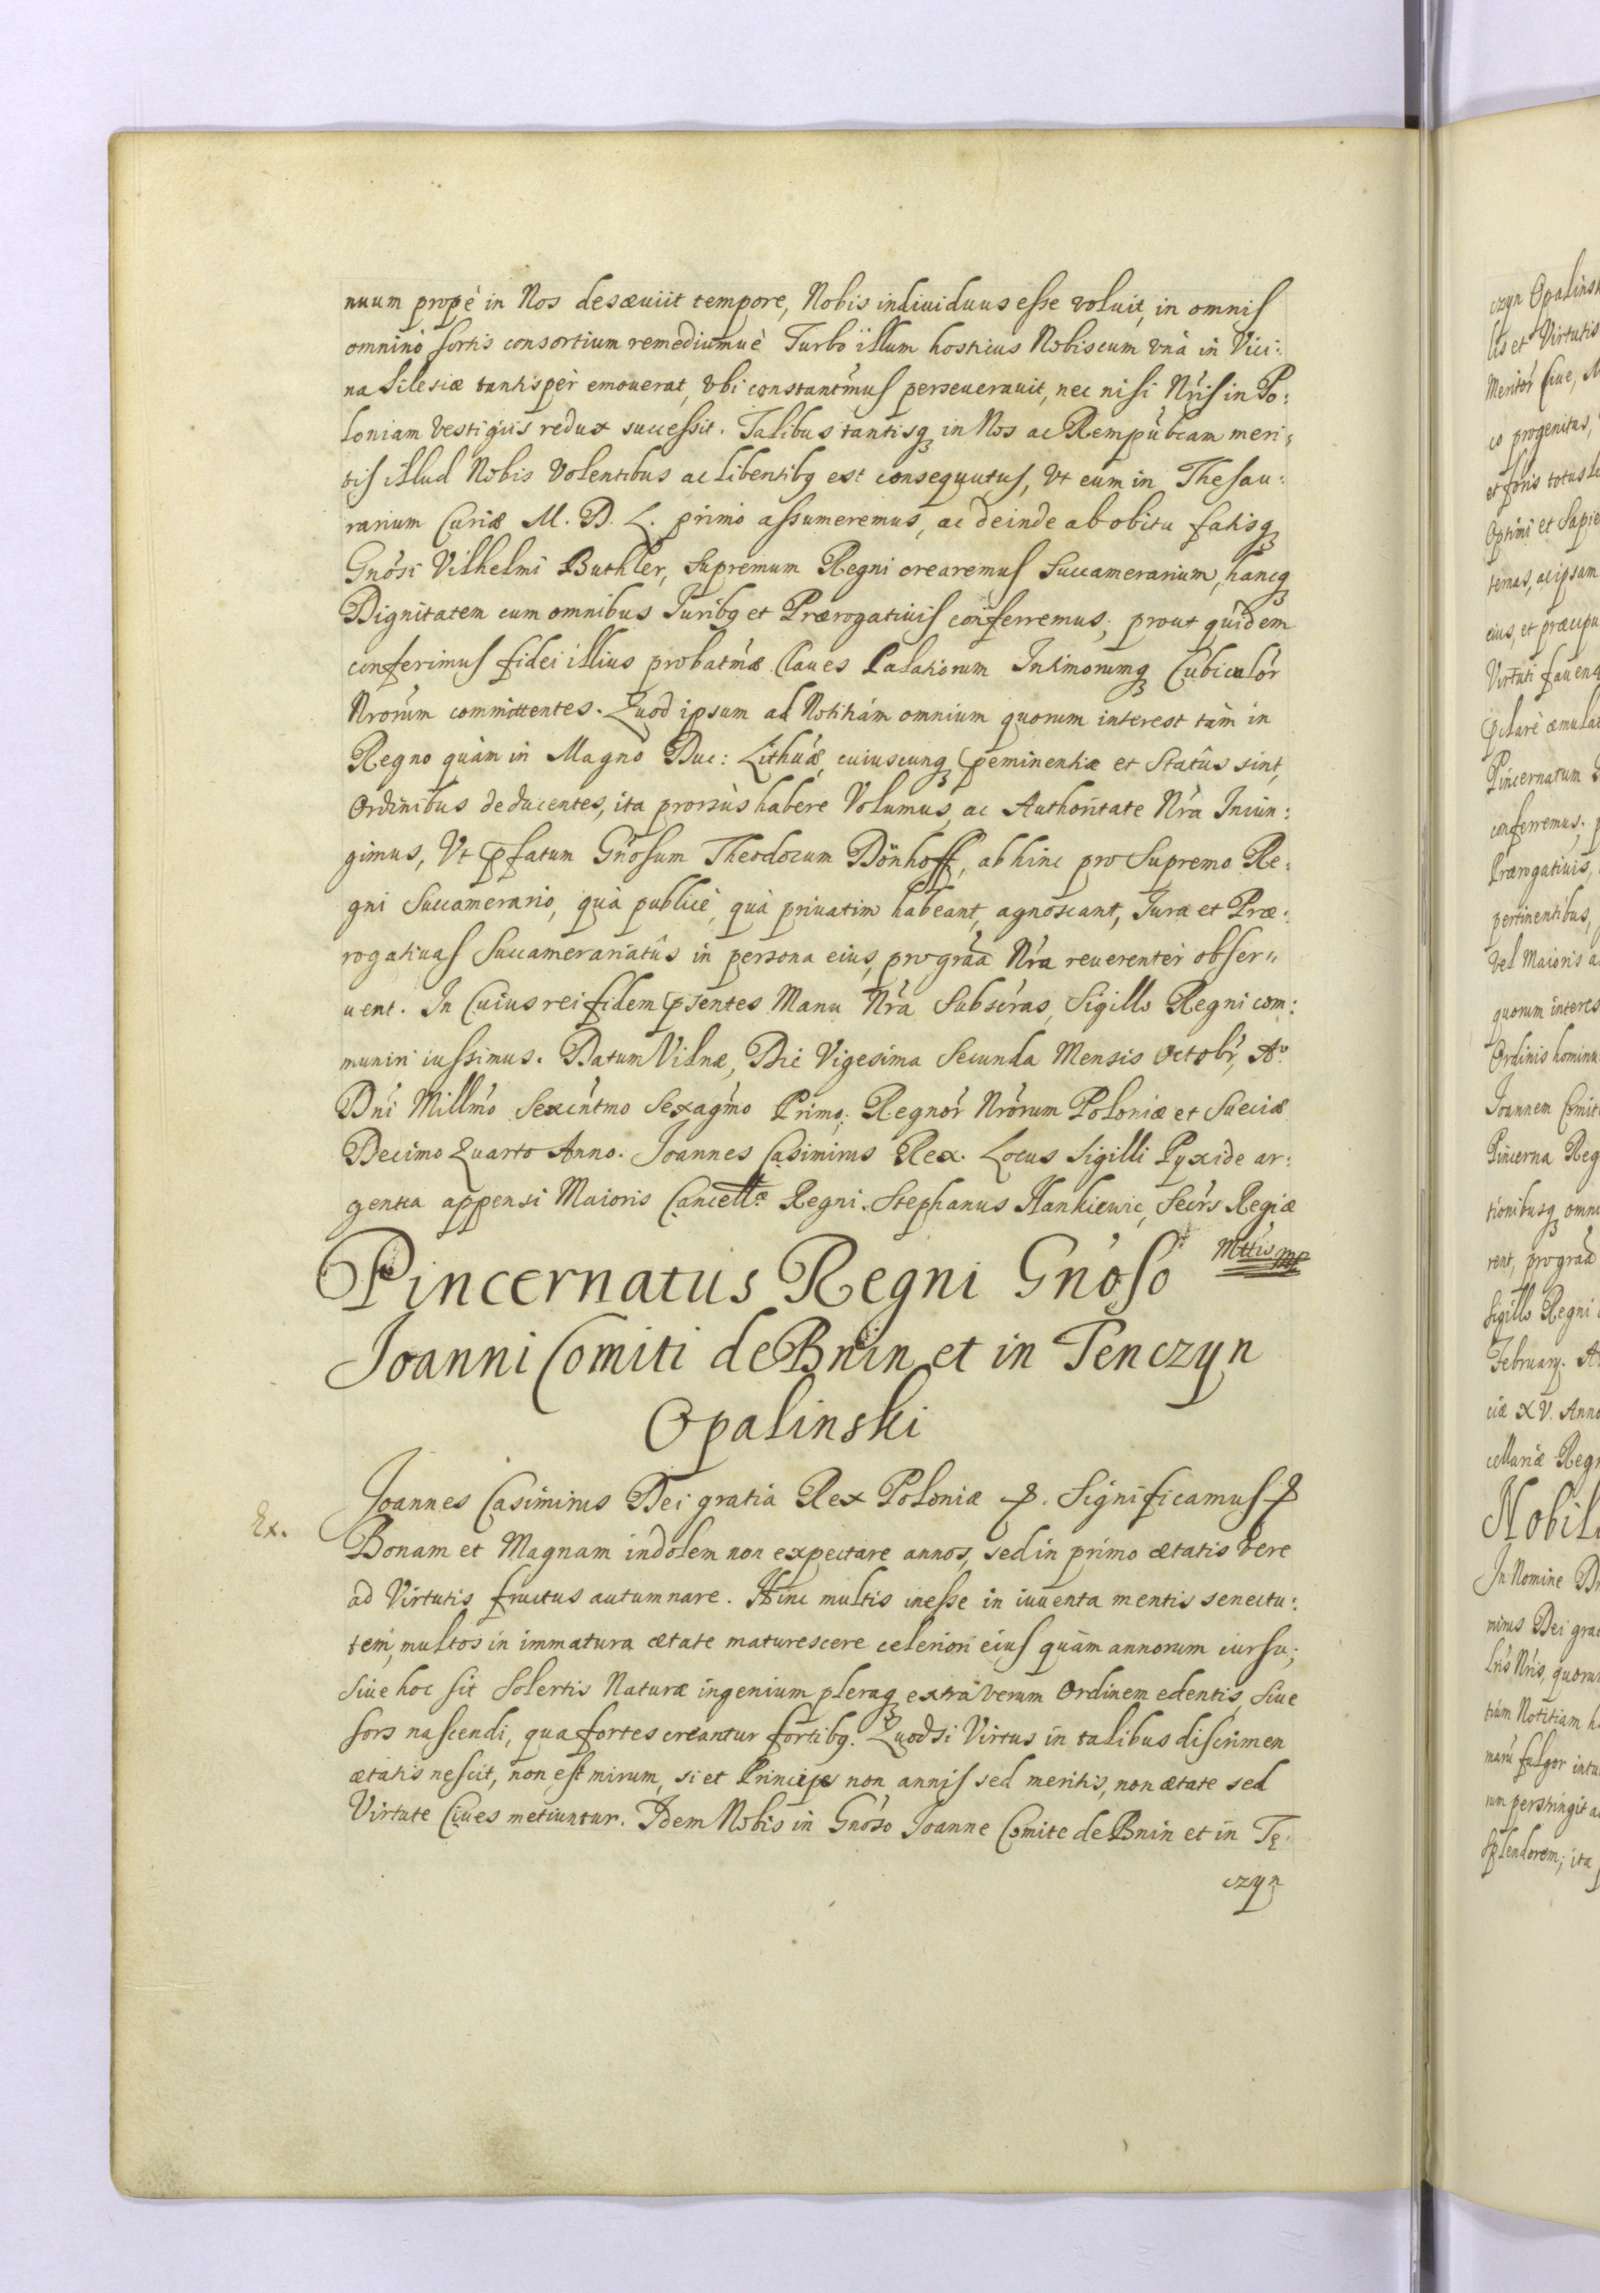 nuum propè in Nos desæuijt tempore, Nobis indiuiduus esse voluit, in omnis
omninò sortis consortium remediumuè Turbo illum hosticus Nobiscum vnà in Vici:
na Silesiæ tantispèr emouerat, vbi constantmus perseuerauit, nec nisi Nris in Po:
loniam vestigijs redux successit. Talibus tantisq in Nos ac Rempubcam meri:
tis illud Nobis Volentibus ac libentibq est consequutus, Vt eum in Thesau:
rarium Curiæ M. D. L. primò assumeremus, ac deinde ab obitu fatisq
Gnosi Vilhelmi Buthler, Supremum Regni crearemus Succamerarium, hancq
Dignitatem cum omnibus Juribq et Prærogatiuis conferremus; prout quidem
conferimus fidei illius probatmæ Claues Palatiorum Intimorumq Cubiculor
Nrorum committentes. Quod ipsum ad Notitiam omnium quorum interest tàm in
Regno quàm in Magno Duc: Lithuæ, cuiuscunq pæminentiæ et Statûs sint,
Ordinibus deducentes, ita prorsùs habere Volumus, ac Authoritate Nra Iniun:
gimus, Vt pfatum Gnosum Theodorum Dönhoff, abhinc pro Supremo Re:
gni Succamerario, quà publicè, quà priuatim habeant, agnoscant, Jura et Præ:
rogatiuas Succamerariatûs in persona eius, pro graa Nra reuerenter obser"
uent. In Cuius rei fidem psentes Manu Nra Subscras, Sigillo Regni com:
muniri iussimus. Datum Vilnæ, Die Vigesima Secunda Mensis Octobr, Ao
Dni Millmo Sexcntmo Sexagmo Primo; Regnor Nrorum Poloniæ et Sueciæ
Decimo Quarto Anno. Joannes Casimirus Rex. Locus Sigilli Pyxide ar:
gentea appensi Maioris Cancellæ Regni. Stephanus Hankiewic, Secrs Regiæ
Mttis mp
Pincernatus Regni Gnoso
Joanni Comiti de Bnin et in Tenczyn
Opalinski
Joannes Casimirus Dei gratia Rex Poloniæ &. Significamus &
Ex.
Bonam et Magnam indolem non expectare annos, sed in primo ætatis vere
ad Virtutis fructus autumnare. Hinc multis inesse in iuuenta mentis senectu:
tem, multos in immatura ætate maturescere celeriori eius quàm annorum cursu;
Siue hoc sit Solertis Naturæ ingenium pleraq extra verum Ordinem edentis, Siue
sors nascendi, qua fortes creantur fortibq. Quodsi Virtus in talibus discrimen
ætatis nescit, non est mirum, si et Principes non annis sed meritis, non ætate sed
Virtute Ciues metiuntur. Idem Nobis in Gnoso Joanne Comite de Bnin et in Tę:
czyn
czyn Opalinsk
lis et Virtutis
Meritor siue, M
co progenitus,
et foris totus
Optimi et Sapie
ternas, ac ipsam
eius, et præcipu
Virtuti fauen
Pincernatum
conferremus;
Prærogatiuis,
pertinentibus,
vel Maioris a
quorum interes
Ordinis hominu
Joannem Comit
Pincerna Reg
tionibusq omni
rent, pro graa
Sigillo Regni
February. A
ciæ XV. Anno
cellariæ Regn
Nobil
In Nomine D
mirus Dei gra
tris Nris, quoru
tiam Notitiam h
fulgor intu
perstringit a
splendorem; ita